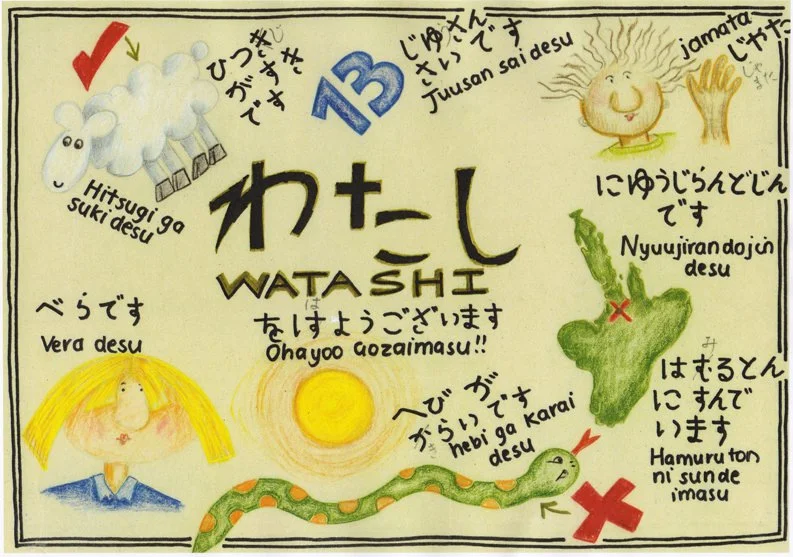 ひつぎ
がすき
です
Hitsugi ga
suki desu
13
じゆさん
さいです
Juusan sai desu
jamata
じやた
わたし
WATASHI
にゆうじらんどじん
です
Nyuujirandojin
desu
べらです
Vera desu
は
をけすようございます
Ohayoo Gozaimasu!!
へびが
がらいです
き
hebi ga Karai
desu
み
はむるとん
にすんで
います
Hamuruton
ni sunde
imasu